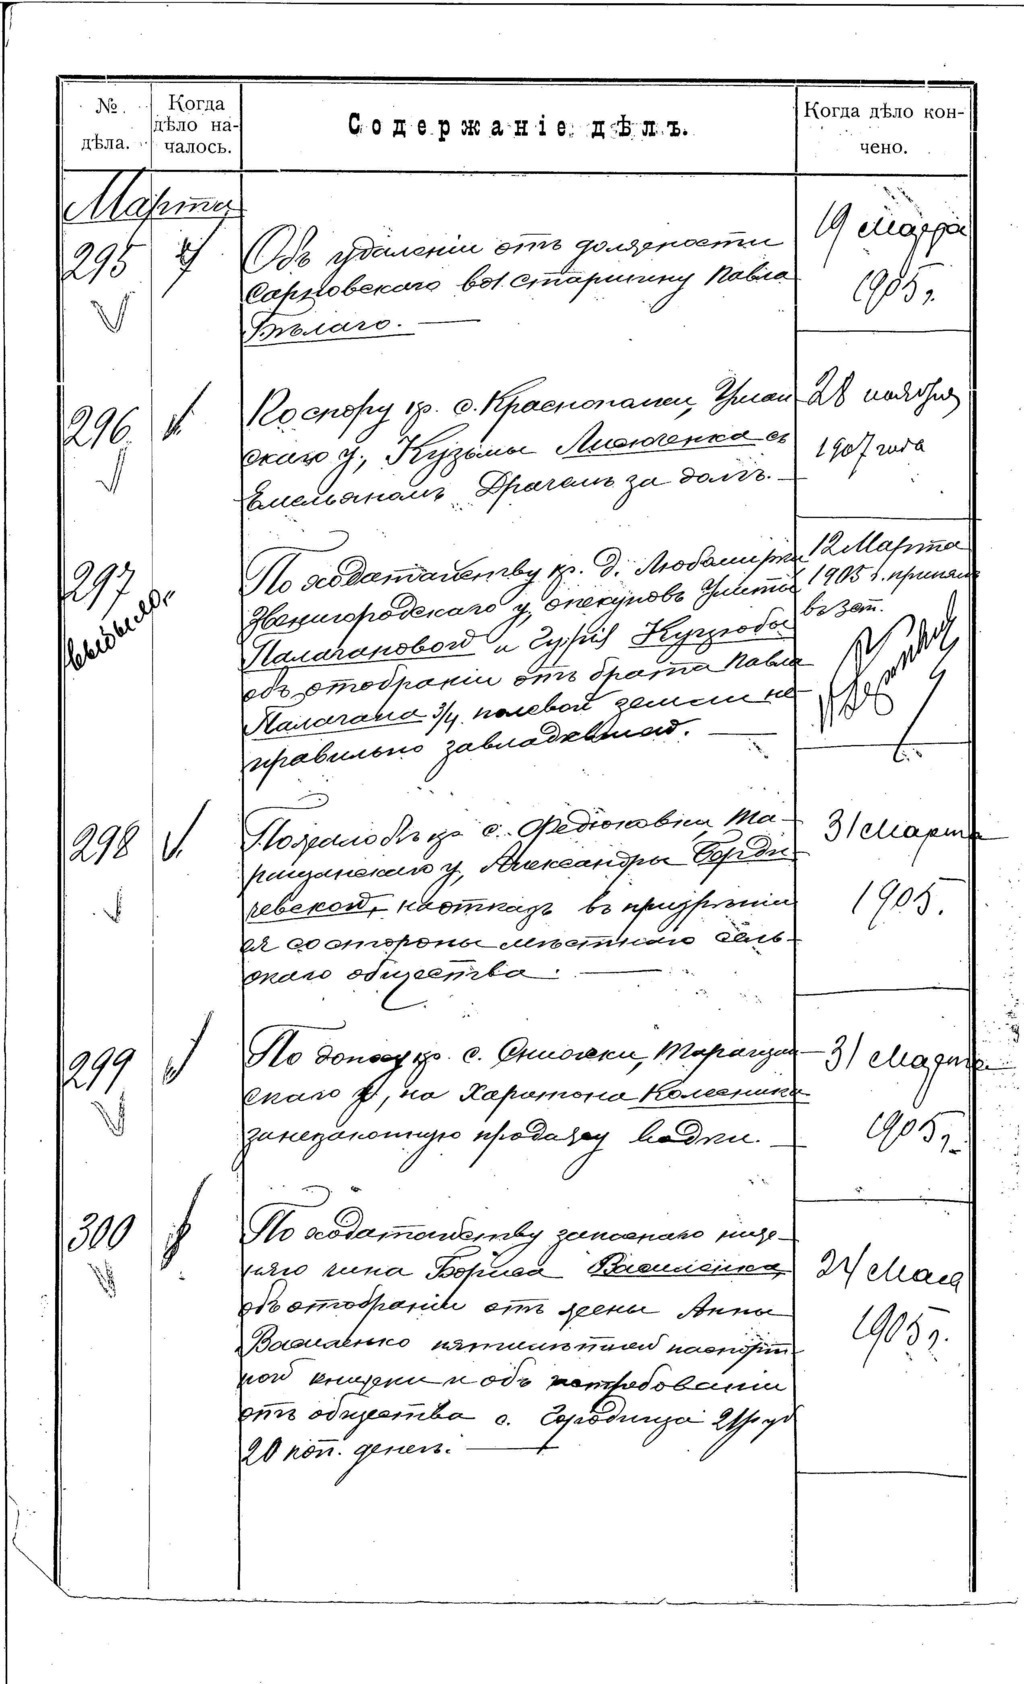 № дѣла.
Когда дѣло началось.
Содержаніе дѣлъ.
Когда дѣло кончено.
Марта
295
Объ удаленіи отъ должности
Сарновскаго вол. старшину Павла
Бѣлаго. —
19 Марта
1905 г.
296
По спору кр. с. Краснополки, Уман
скаго у., Кузьмы Лисюченка съ
Емельяномъ Драчемъ за долгъ. —
28 ноября
1907 года
297
выбыло
По ходатайству кр. д. Любомирки
Звенигородскаго у, опекуновъ Улиты
Палагановой и Гурія Кугукобы
объ отобраніи отъ брата Павла
Палагана 3/4 полевой земли не
правильно завладѣвшаго. —
12 Марта
1905 г. принят
въ зат.
298
По жалобѣ кр. с. Федюковки, Та-
ращанскаго у, Александры Борди
чевской, на отказъ въ призрѣніи
ея со стороны мѣстнаго сель-
скаго общества. —
31 Марта
1905.
299
По доносу кр. с. Снѣжки, Таращан
скаго у, на Харитона Колесника
за незаконную продажу водки. —
31 Марта
1905 г.
300
По ходатайству запаснаго ниж-
няго чина Бориса Василенка,
объ отобраніи отъ жены Анны
Василенко пятилѣтней паспорт-
ной книжки и объ истребованіи
отъ общества с. Городища 21 руб
20 коп. денег. —
24 Мая
1905 г.